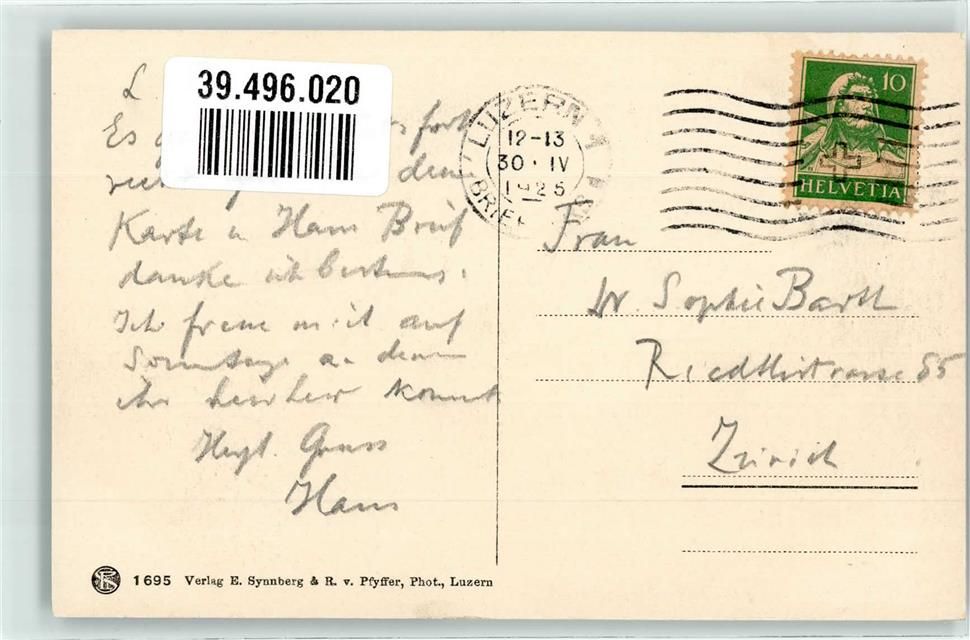 39.496.020
L
Es
Karte u Hans Brief
danke ich bestens.
Ich freue mich auf
Sonntag an dem
ihr hierher kommt
Hrzl. Gruss
Hans
LUZERN 1
12-13
30. IV
1925
BRIEF
10
HELVETIA
Frau
Dr Sophie Barth
Riedtlistrasse 55
Zürich
1695 Verlag E. Synnberg & R. v. Pfyffer, Phot., Luzern